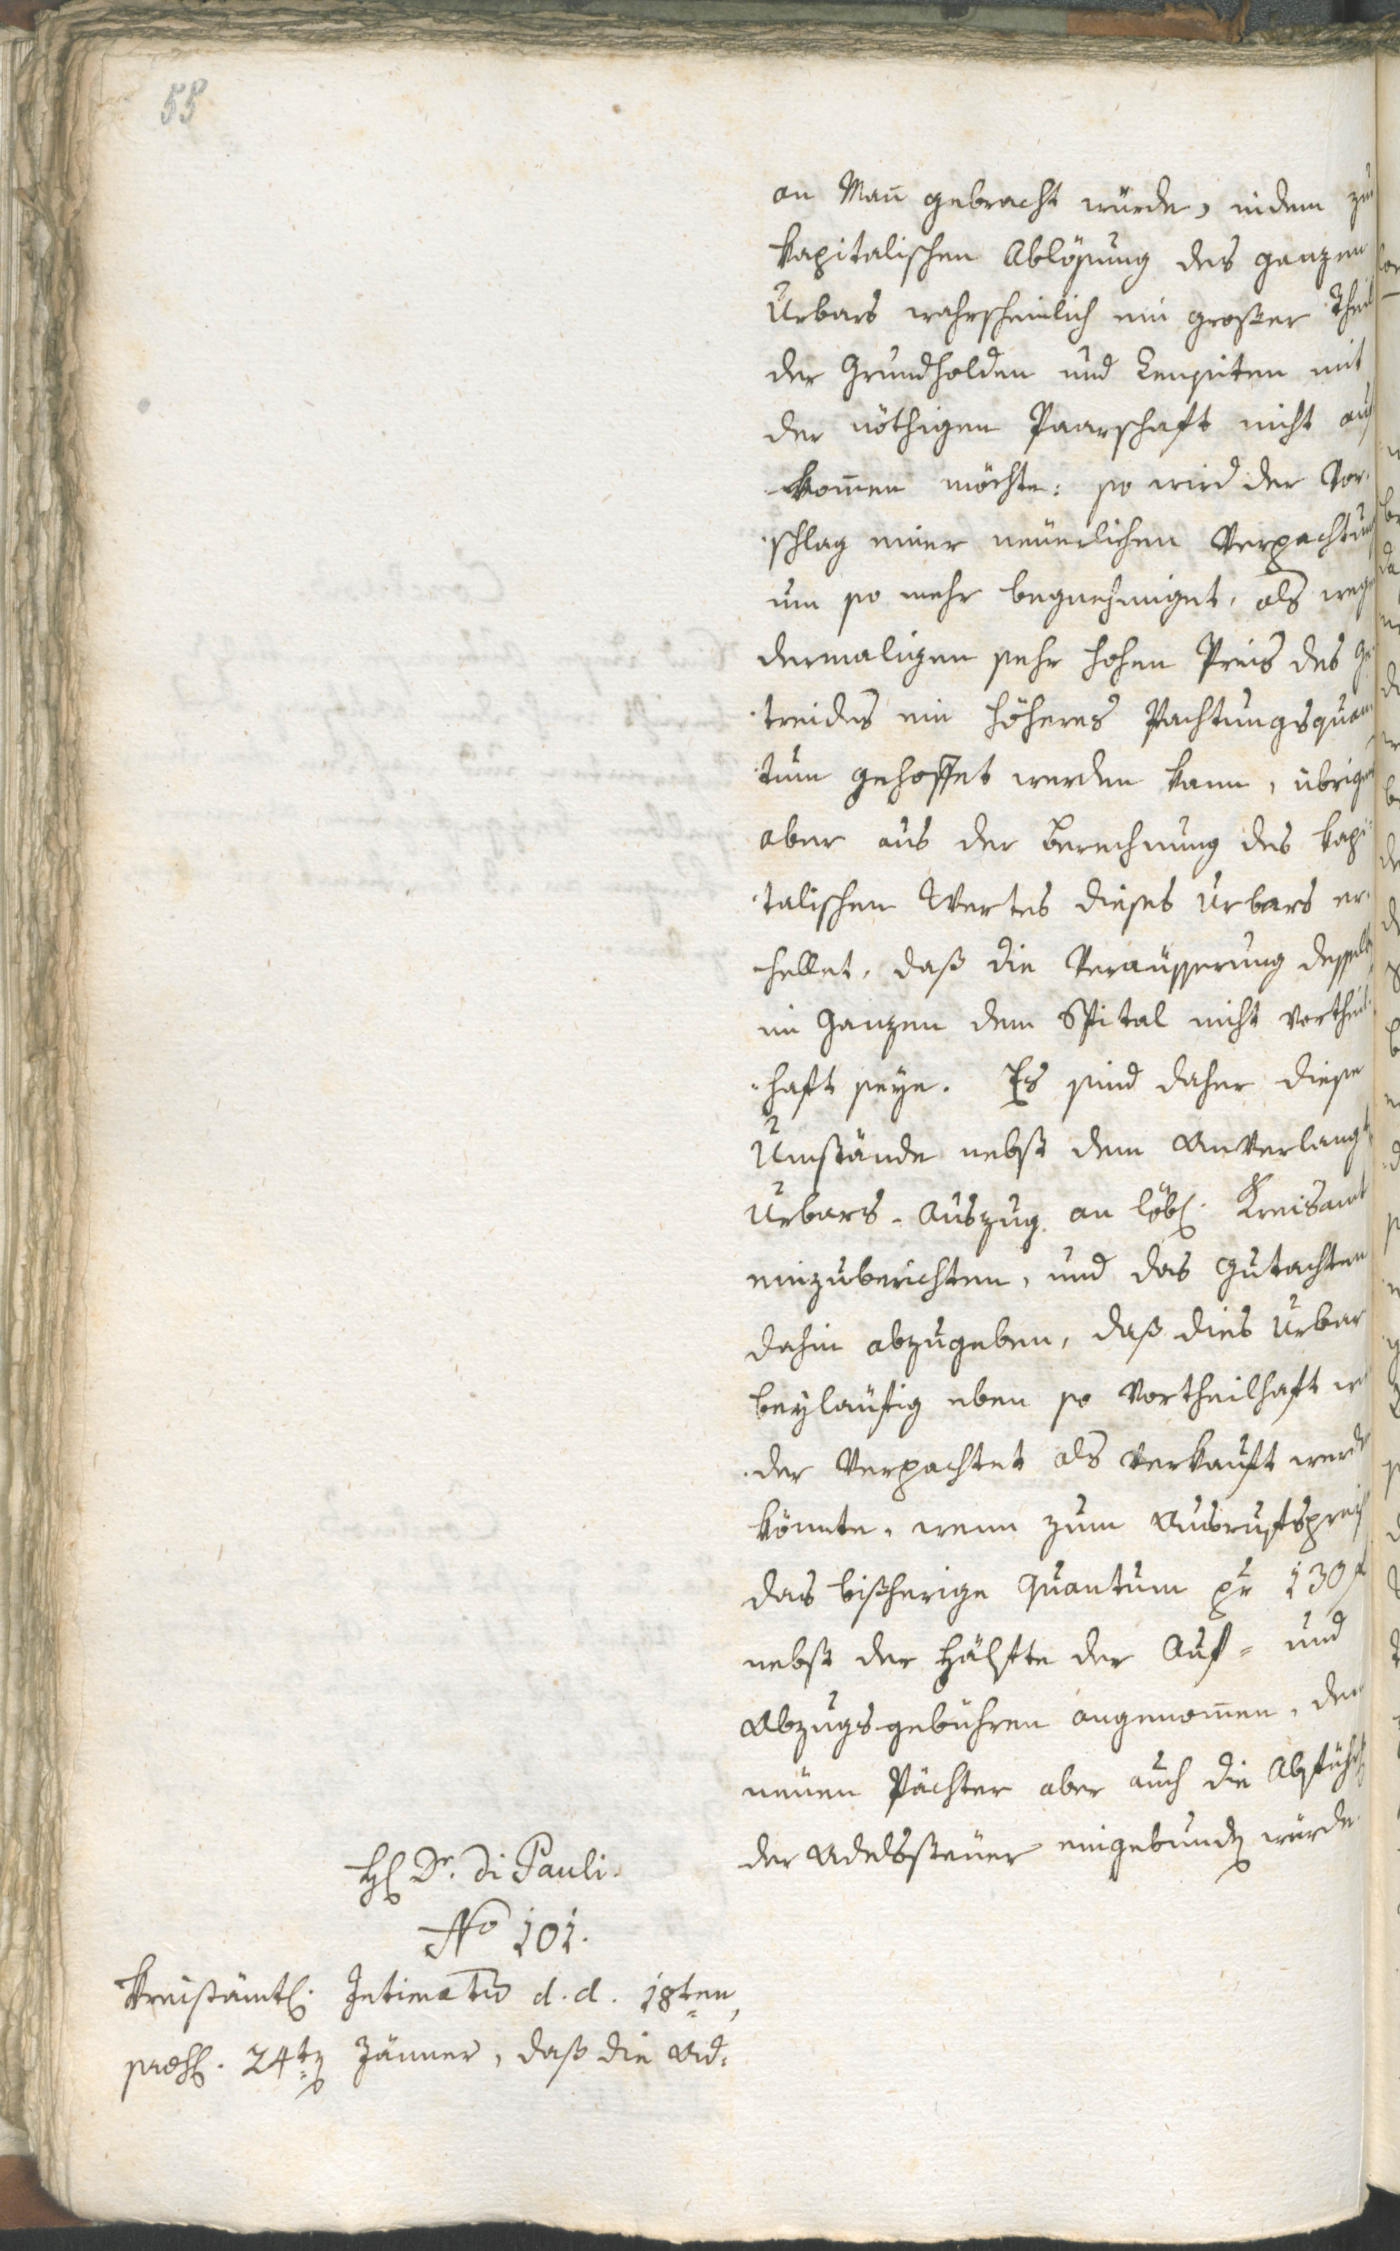 55
an Mañ gebracht würde, indem zur
kapitalischen Ablösung des ganzen
Urbars wahrscheinlich ein großer Theil
der Grundholden und Censiten mit
der nöthigen Paarschaft nicht auf
kom̃en möchte: so wird der Vor-
schlag einer neuerlichen Verpachtung
um so mehr begnehmiget, als wegen
dermaligen sehr hohen Preis des Ge-
treides ein höheres Pachtungsquan-
tum gehoffet werden kann, übrigens
aber aus der Berechnung des kapi-
talischen Wertes dieses Urbars er-
hellet, daß die Veräusserung desselben
im Ganzen dem Spital nicht vortheil-
haft seye. Es sind daher diese
Umstände nebst dem anverlangten
Urbars-Auszug an löbl. Kreisamt
einzuberichten, und das Gutachten
dahin abzugeben, daß dies Urbar
beyläufig eben so vortheilhaft wie-
der verpachtet als verkauft werden
könnte, wenn zum Ausrufspreis
das bißherige Quantum pr 130 f
nebst der Hälfte der Auf- und
Abzugsgebühren angenom̃en, dem
neuen Pächter aber auch die Abführung
der Adelssteuer eingebunden würde.
H. Dr. di Pauli.
No 101.
Kreisämtl. Intimatum d. d. 18ten,
praes. 24ten Jänner, daß die Ad-